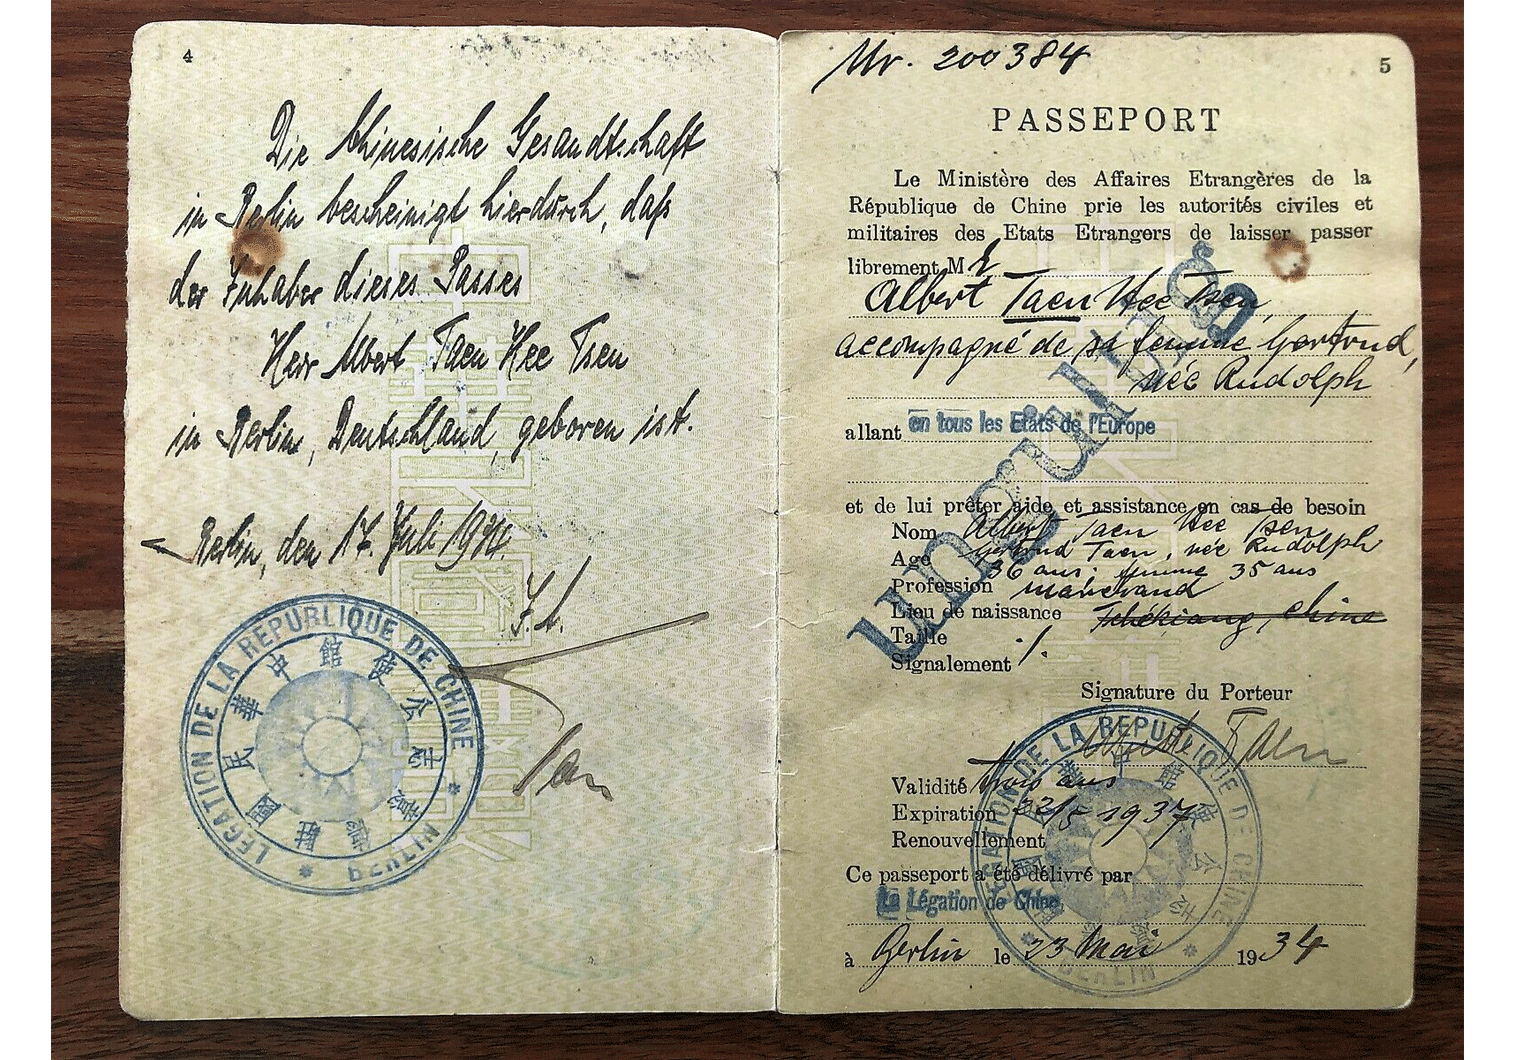 4
Die Chinesische Gesandtschaft
in Berlin bescheinigt hierdurch, daß
der Inhaber dieses Passes
Herr Albert Taen Hee Tsen
in Berlin, Deutschland, geboren ist.
Berlin, den 17. Juli 1934.
I.A.
LEGATION DE LA REPUBLIQUE DE CHINE * BERLIN *
中華民國駐德意志公使館
Nr. 200384
5
PASSEPORT
Le Ministère des Affaires Etrangères de la
République de Chine prie les autorités civiles et
militaires des Etats Etrangers de laisser passer
librement Mr
Albert Taen Hee Tsen,
accompagné de sa femme Gertrud,
née Rudolph
allant en tous les Etats de l'Europe
Ungültig
et de lui prêter aide et assistance en cas de besoin
Nom Albert Taen Hee Tsen
Gertrud Taen, née Rudolph
Age 36 ans; femme 35 ans
Profession marchand
Lieu de naissance Tchékiang, Chine
Taille
Signalement ./.
Signature du Porteur
Albert Taen
Validité trois ans
Expiration 22/5 1937
Renouvellement
Ce passeport a été délivré par
La Légation de Chine
à Berlin le 23 Mai 1934
LEGATION DE LA REPUBLIQUE DE CHINE * BERLIN *